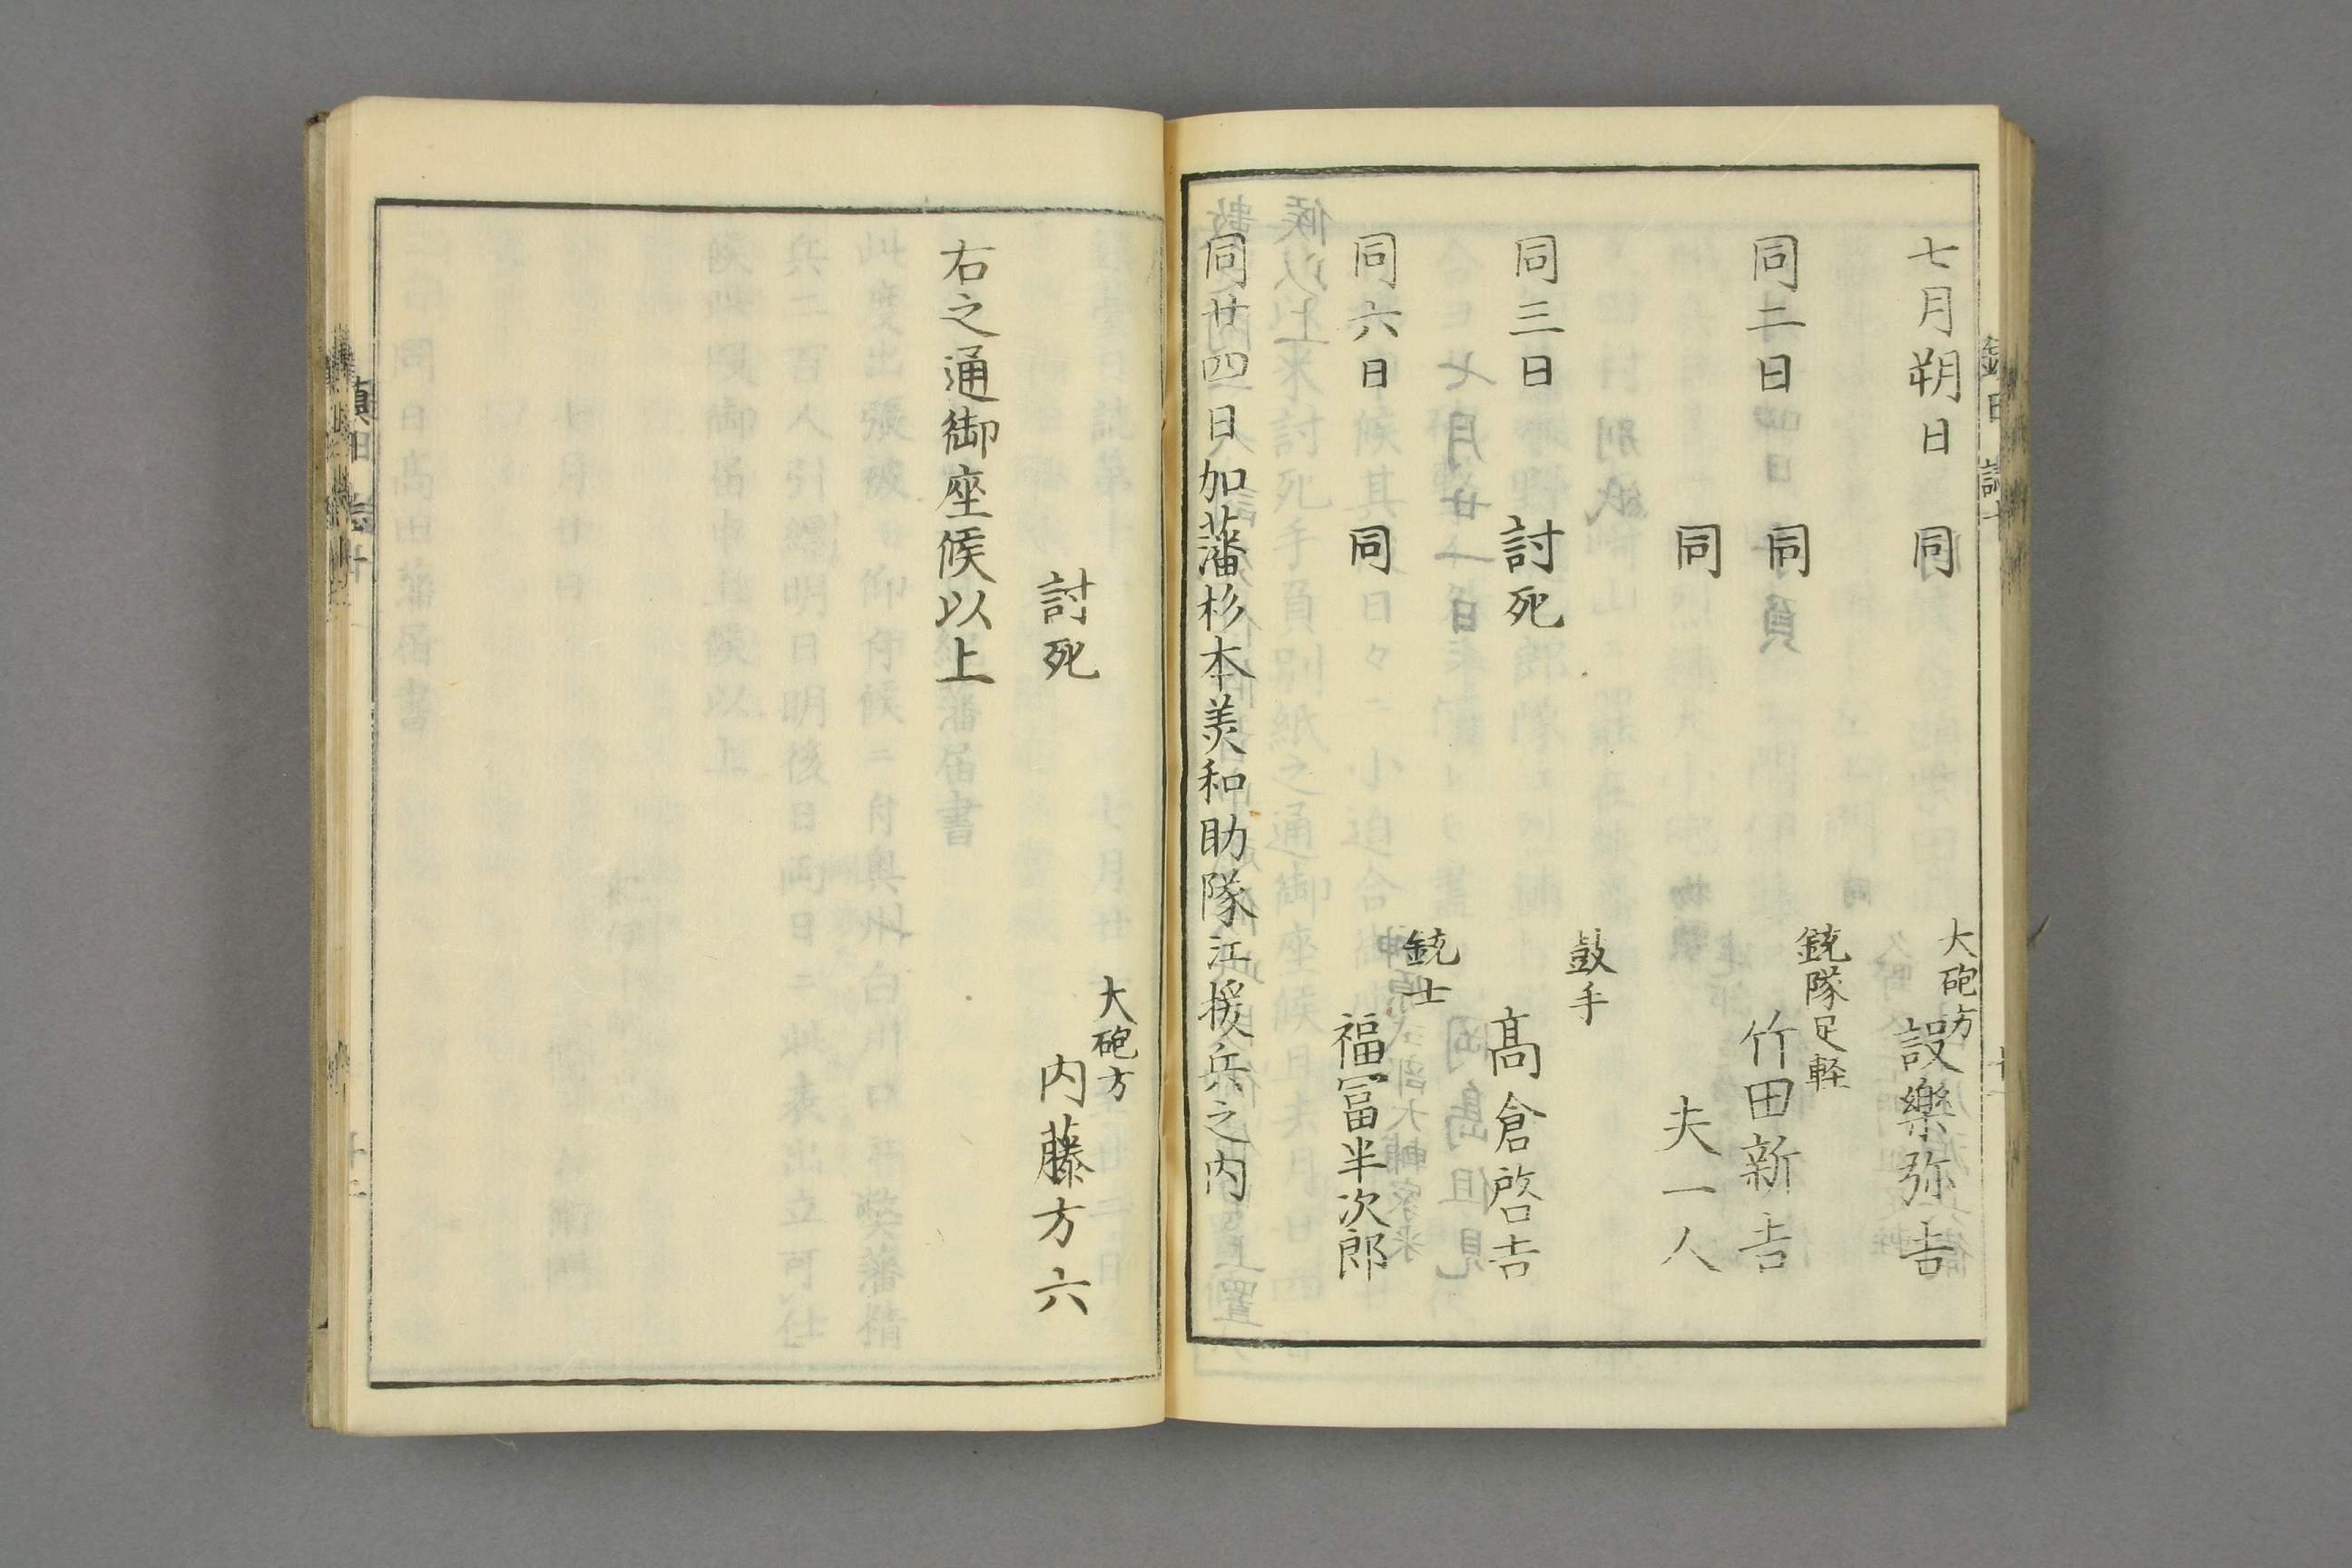 七月朔日 同 大砲方 設樂弥吉
同二日 同 銃隊足軽 竹田新吉
同 夫一人
同三日 討死 鼓手 髙倉啓吉
同六日 同 銃士 福冨半次郎
同廿四日加藩杉本美和助隊江援兵之内
討死 大砲方 内藤方六
右之通御座候以上